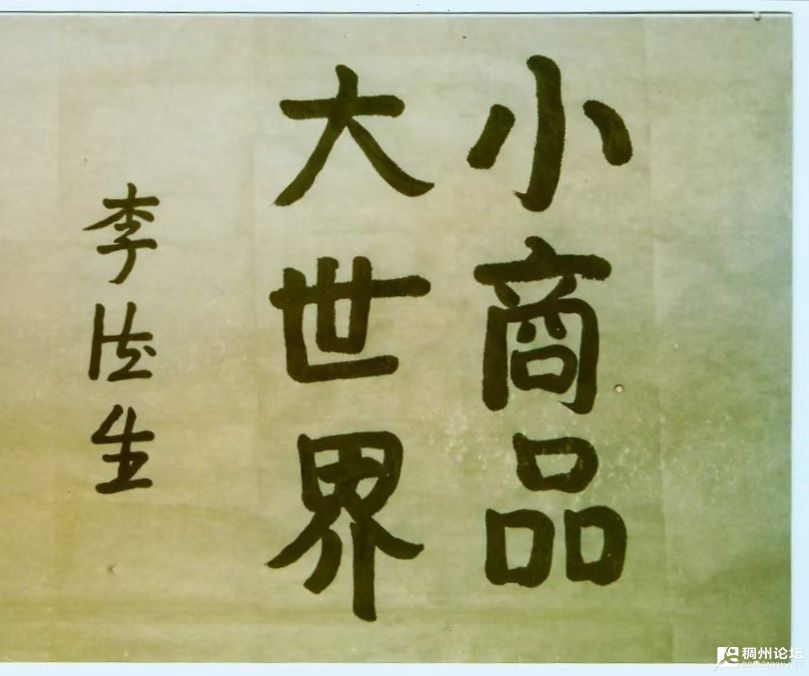 小商品
大世界
李德生
稠州论坛